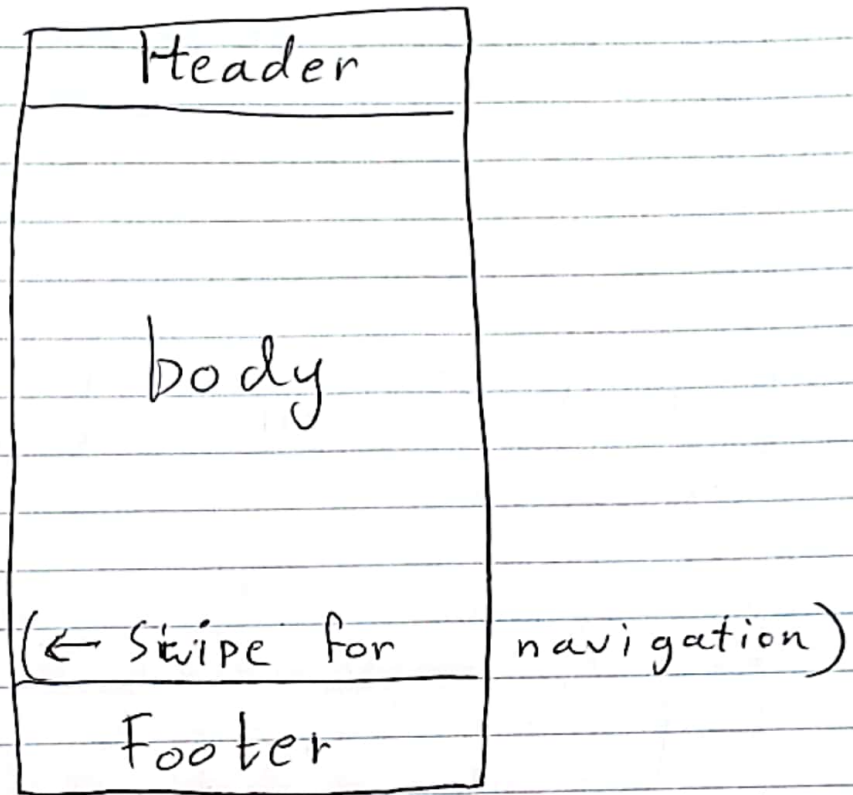 Header
body
(← Swipe for navigation)
Footer